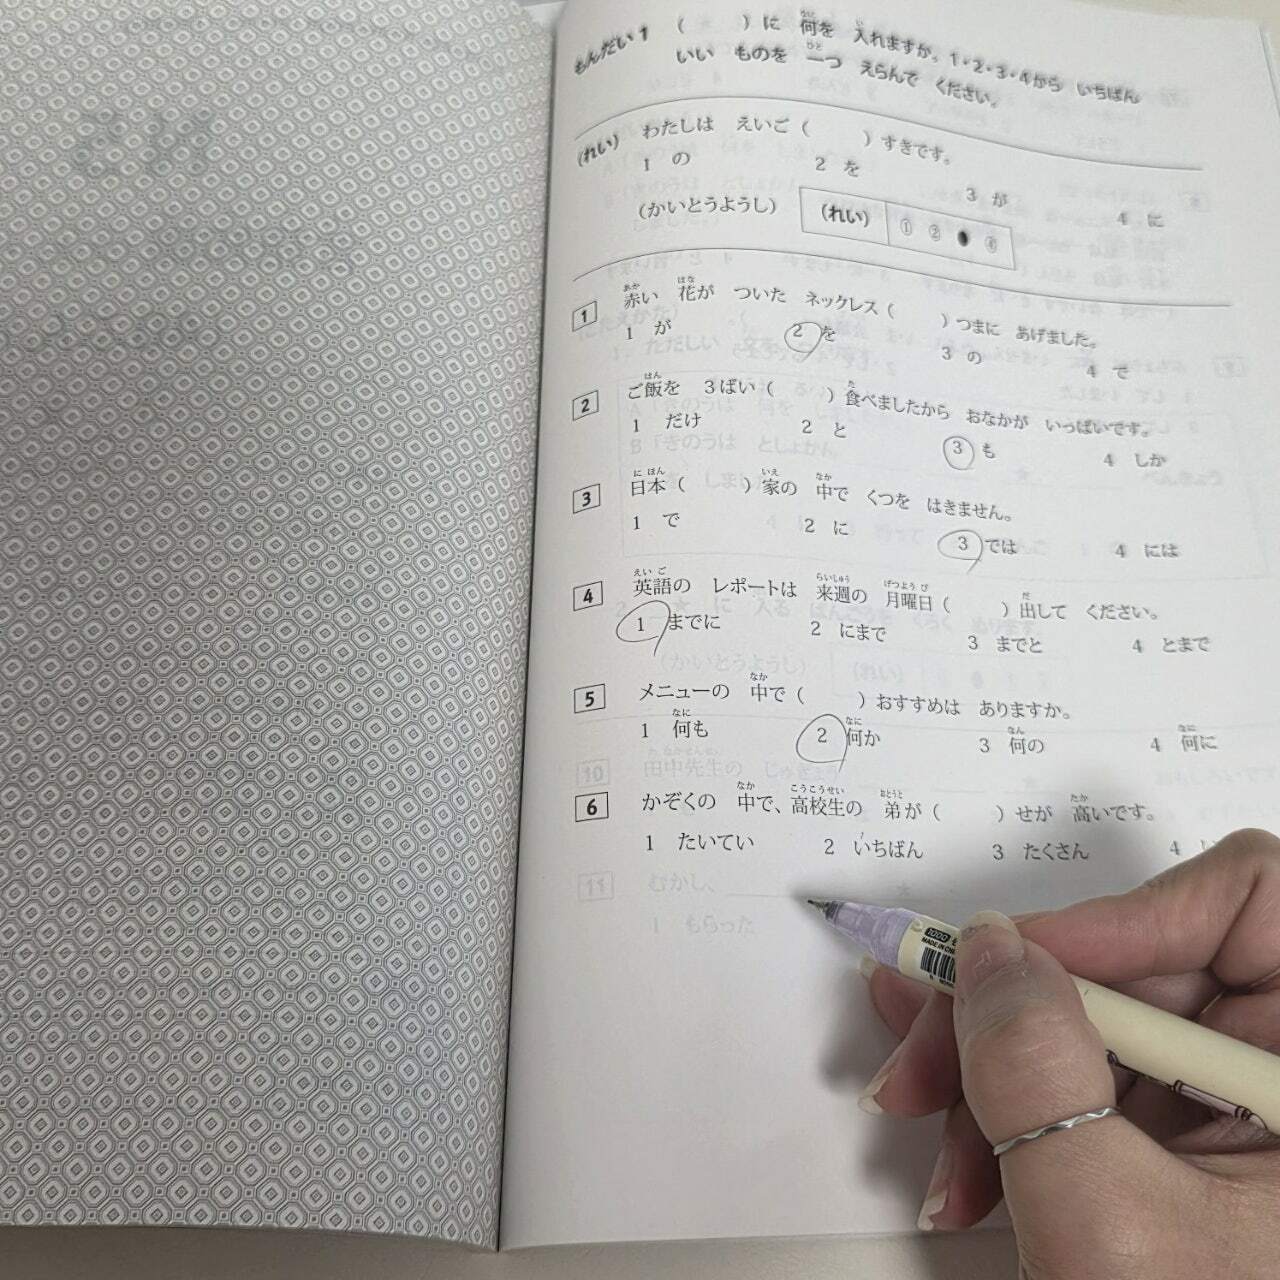 もんだい1 (　　)に 何を 入れますか。1・2・3・4から いちばん
いい ものを 一つ えらんで ください。
(れい) わたしは えいご (　　) すきです。
1 の 2 を 3 が 4 に
(かいとうようし) (れい) ① ② ● ④
1 赤い 花が ついた ネックレス (　　) つまに あげました。
1 が 2 を 3 の 4 で
2 ご飯を 3ばい (　　) 食べましたから おなかが いっぱいです。
1 だけ 2 と 3 も 4 しか
3 日本 (　　) 家の 中で くつを はきません。
1 で 2 に 3 では 4 には
4 英語の レポートは 来週の 月曜日 (　　) 出して ください。
1 までに 2 にまで 3 までと 4 とまで
5 メニューの 中で (　　) おすすめは ありますか。
1 何も 2 何か 3 何の 4 何に
6 かぞくの 中で、高校生の 弟が (　　) せが 高いです。
1 たいてい 2 いちばん 3 たくさん 4
10 田中先生の じゅぎょう
11 むかし、
1 もらった
MADE IN